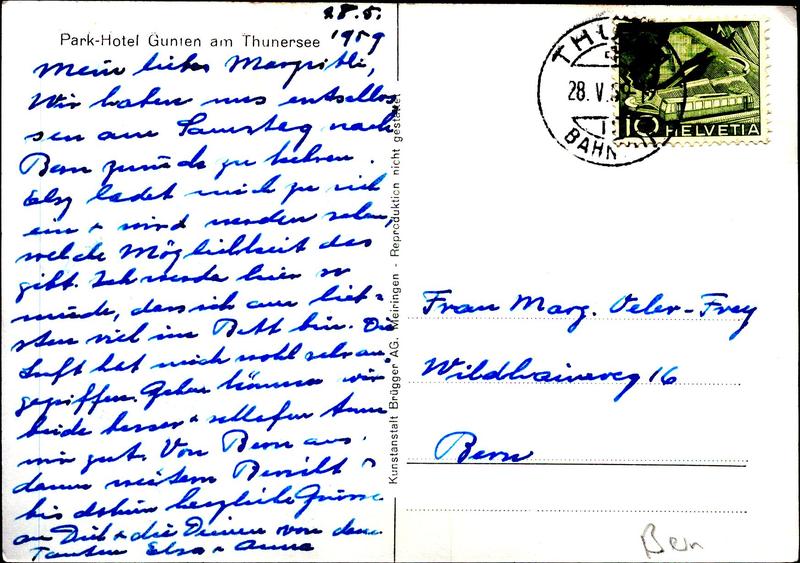 28.5.
1959
Park-Hotel Gunten am Thunersee
Mein liebes Margritli,
Wir haben uns entschlos-
sen am Samstag nach
Bern zurück zu kehren.
Elsy ladet mich zu sich
ein + wird werden sehen,
welche Möglichkeit das
gibt. Ich werde hier so
müde, dass ich am lieb-
sten viel im Bett bin. Die
Luft hat mich wohl sehr an-
gegriffen. Gehen können wir
beide besser + schlafen kann
wir gut. Von Bern aus
dann weitern Bericht
bis dahin herzliche Grüsse
an Dich + die Deinen von den
Tanten Elsa + Anna
Kunstanstalt Brügger AG. Meiringen - Reproduktion nicht gestattet
THUN
28. V. 59
BAHN
10 HELVETIA
Frau Marg. Oeler-Frey
Wildhainweg 16
Bern
Bern